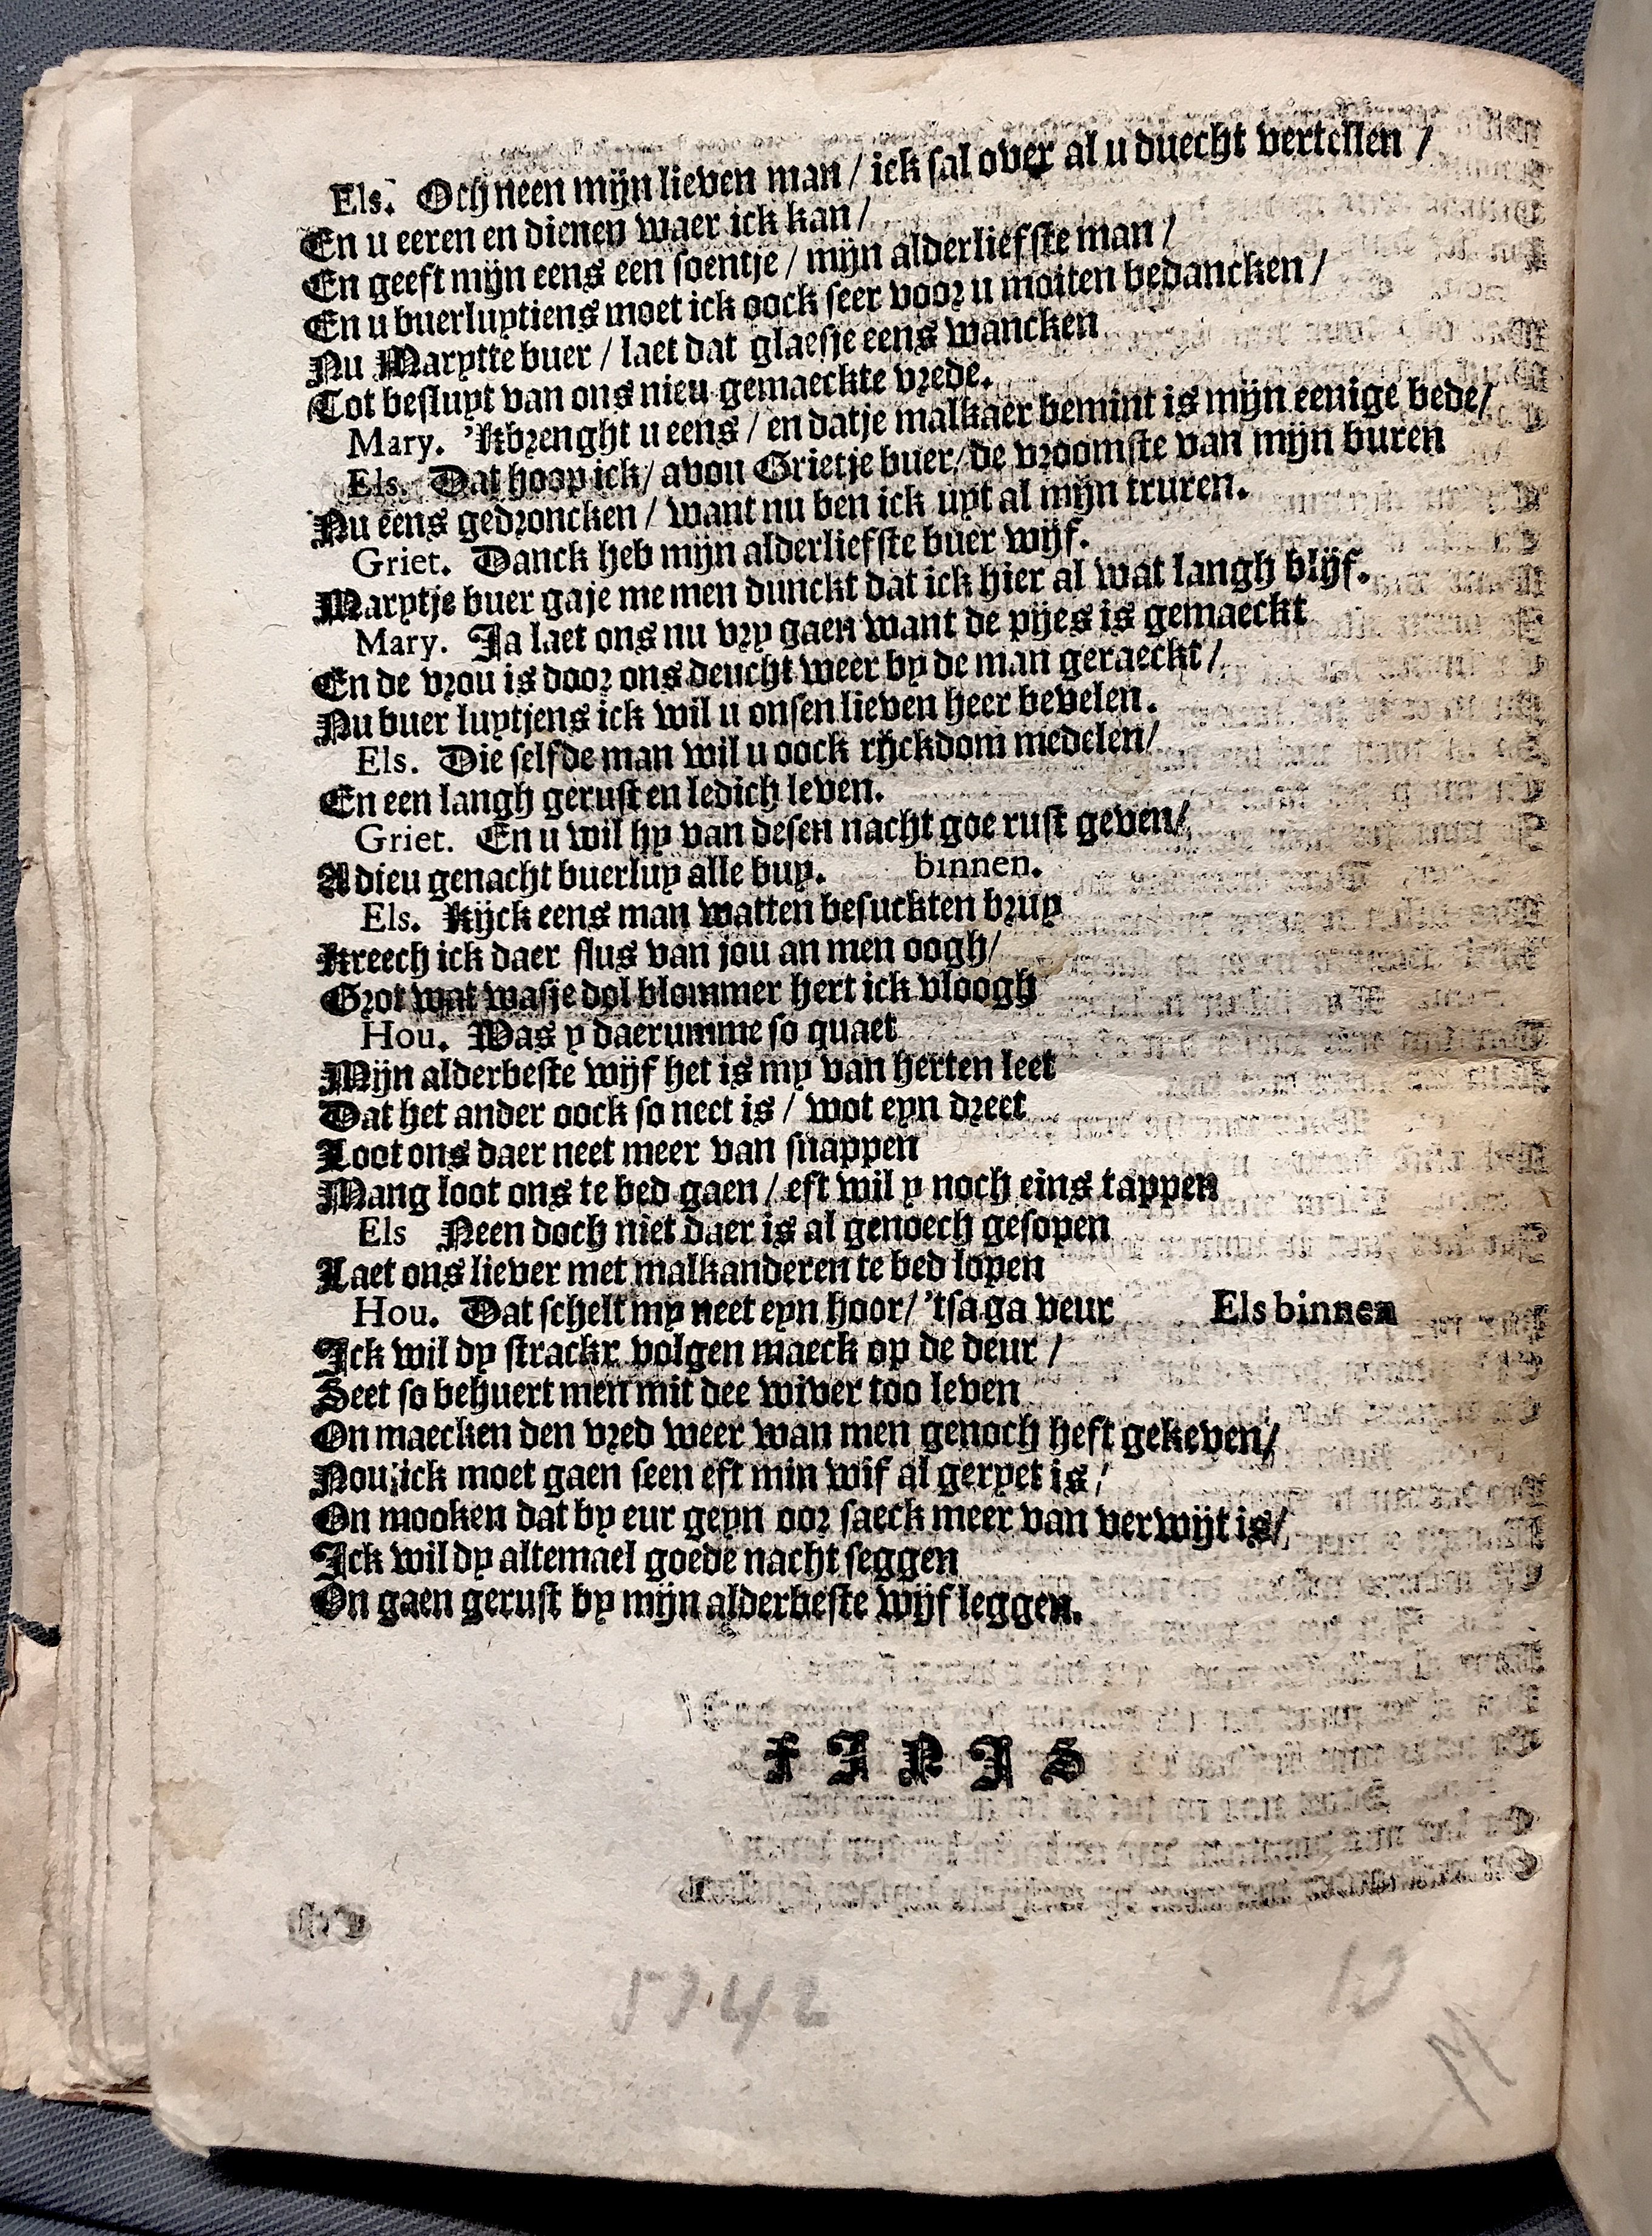 Els. Och neen mijn lieven man / ick sal over al u duecht vertellen /
En u eeren en dienen waer ick kan /
En geeft mijn eens een soentje / mijn alderliefste man /
En u buerluytiens moet ick oock seer voor u moiten bedancken /
Nu Marytte buer / laet dat glaesje eens wancken
Tot besluyt van ons nieu gemaeckte vrede.
Mary. 'Kbrenght u eens / en datje malkaer bemint is mijn eenige bede /
Els. Dat hoop ick / avou Grietje buer / de vroomste van mijn buren
Nu eens gedroncken / want nu ben ick uyt al mijn truren.
Griet. Danck heb mijn alderliefste buer wijf.
Marytje buer gaje me men dunckt dat ick hier al wat langh blijf.
Mary. Ja laet ons nu vry gaen want de pijes is gemaeckt
En de vrou is door ons deucht weer by de man geraeckt /
Nu buer luytjens ick wil u onsen lieven heer bevelen.
Els. Die selfde man wil u oock rijckdom medelen /
En een langh gerust en ledich leven.
Griet. En u wil hy van desen nacht goe rust geven /
Adieu genacht buerluy alle buy. binnen.
Els. Kijck eens man watten besuckten bruy
Kreech ick daer flus van jou an men oogh /
Grot wat wasje dol blommer hert ick vloogh
Hou. Was y daerumme so quaet
Mijn alderbeste wijf het is my van herten leet
Dat het ander oock so neet is / wot eyn dreet
Loot ons daer neet meer van snappen
Mang loot ons te bed gaen / eft wil y noch eins tappen
Els Neen doch niet daer is al genoech gesopen
Laet ons liever met malkanderen te bed lopen
Hou. Dat schelt my neet eyn hoor / 'tsa ga veur Els binnen
Ick wil dy strackx volgen maeck op de deur /
Seet so behuert men mit dee wiver too leven
On maecken den vred weer wan men genoch heft gekeven /
Nou ick moet gaen seen eft min wif al geryet is /
On mooken dat by eur geyn oor saeck meer van verwijt is /
Ick wil dy altemael goede nacht seggen
On gaen gerust by mijn alderbeste wijf leggen.
FINIS